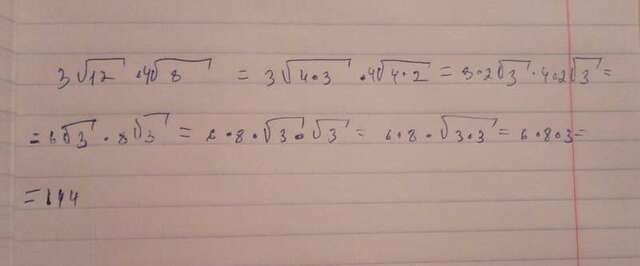 3√12 · 4√8 = 3√4·3 · 4√4·2 = 3·2√3 · 4·2√3 =
= 6√3 · 8√3 = 6·8·√3·√3 = 6·8·√3·3 = 6·8·3 =
= 144